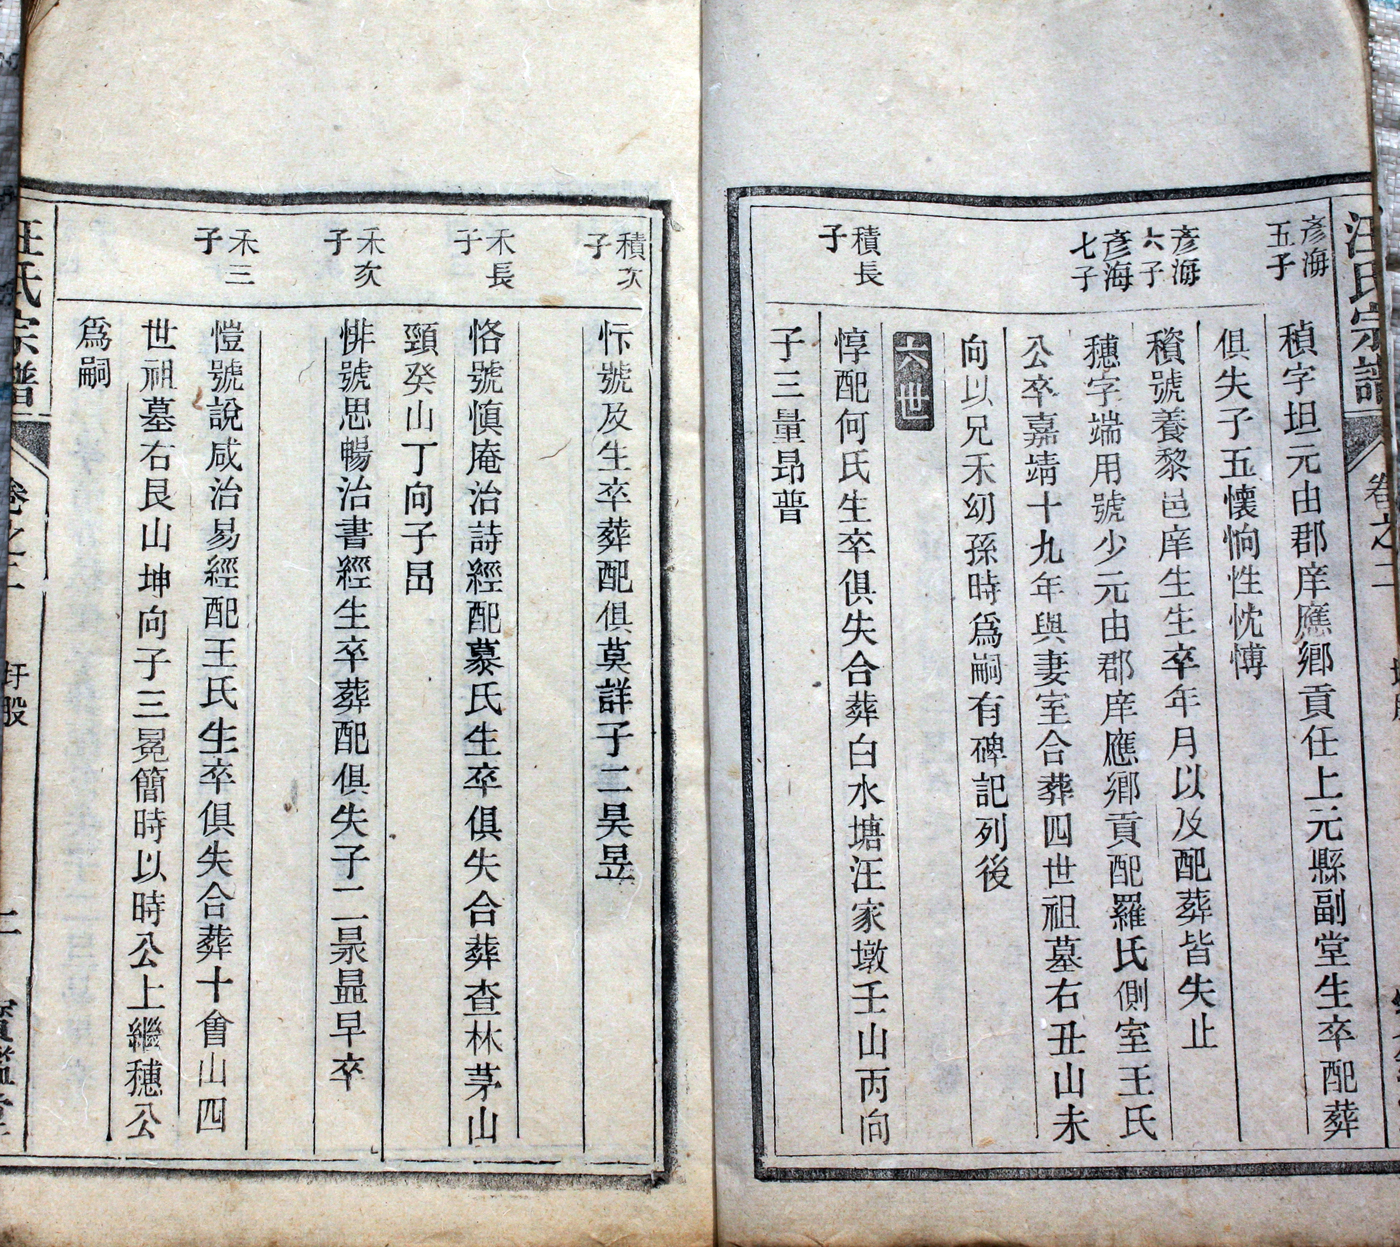 汪氏宗譜 卷之二
彥海五子
禎字坦元由郡庠應鄉貢任上元縣副堂生卒配葬
俱失子五懷恦性忱愽
彥海六子
積號養黎邑庠生生卒年月以及配葬皆失止
彥海七子
穗字端用號少元由郡庠應鄉貢配羅氏側室王氏
公卒嘉靖十九年與妻室合葬四世祖墓右丑山未
向以兄禾幼孫時爲嗣有碑記列後
六世
積長子
惇配何氏生卒俱失合葬白水塘汪家墩壬山丙向
子三量昂普
積次子
忭號及生卒葬配俱莫詳子二昊昱
禾長子
恪號慎庵治詩經配慕氏生卒俱失合葬查林茅山
頸癸山丁向子昂
禾次子
悱號思暢治書經生卒葬配俱失子二景昷早卒
禾三子
愷號說咸治易經配王氏生卒俱失合葬十會山四
世祖墓右艮山坤向子三冕簡時以時公上繼穗公
爲嗣
汪氏宗譜 卷之二 圩股 二